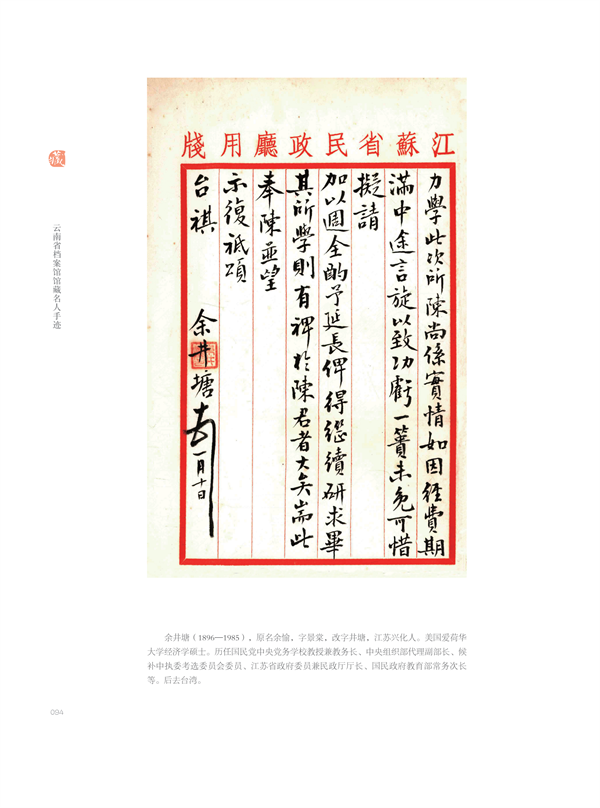 江蘇省民政廳用牋
力學此次所陳尚係實情如因經費期
滿中途言旋以致功虧一簣未免可惜
擬請
加以週全酌予延長俾得繼續研求畢
其所學則有裨於陳君者大矣耑此
奉陳並望
示復祗頌
台祺
余井塘
一月十日
藏
云南省档案馆馆藏名人手迹
余井塘（1896—1985），原名余愉，字景棠，改字井塘，江苏兴化人。美国爱荷华
大学经济学硕士。历任国民党中央党务学校教授兼教务长、中央组织部代理副部长、候
补中执委考选委员会委员、江苏省政府委员兼民政厅厅长、国民政府教育部常务次长
等。后去台湾。
094